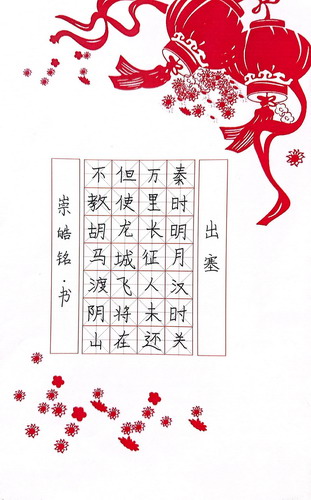 出塞
秦时明月汉时关
万里长征人未还
但使龙城飞将在
不教胡马渡阴山
崇皓铭·书